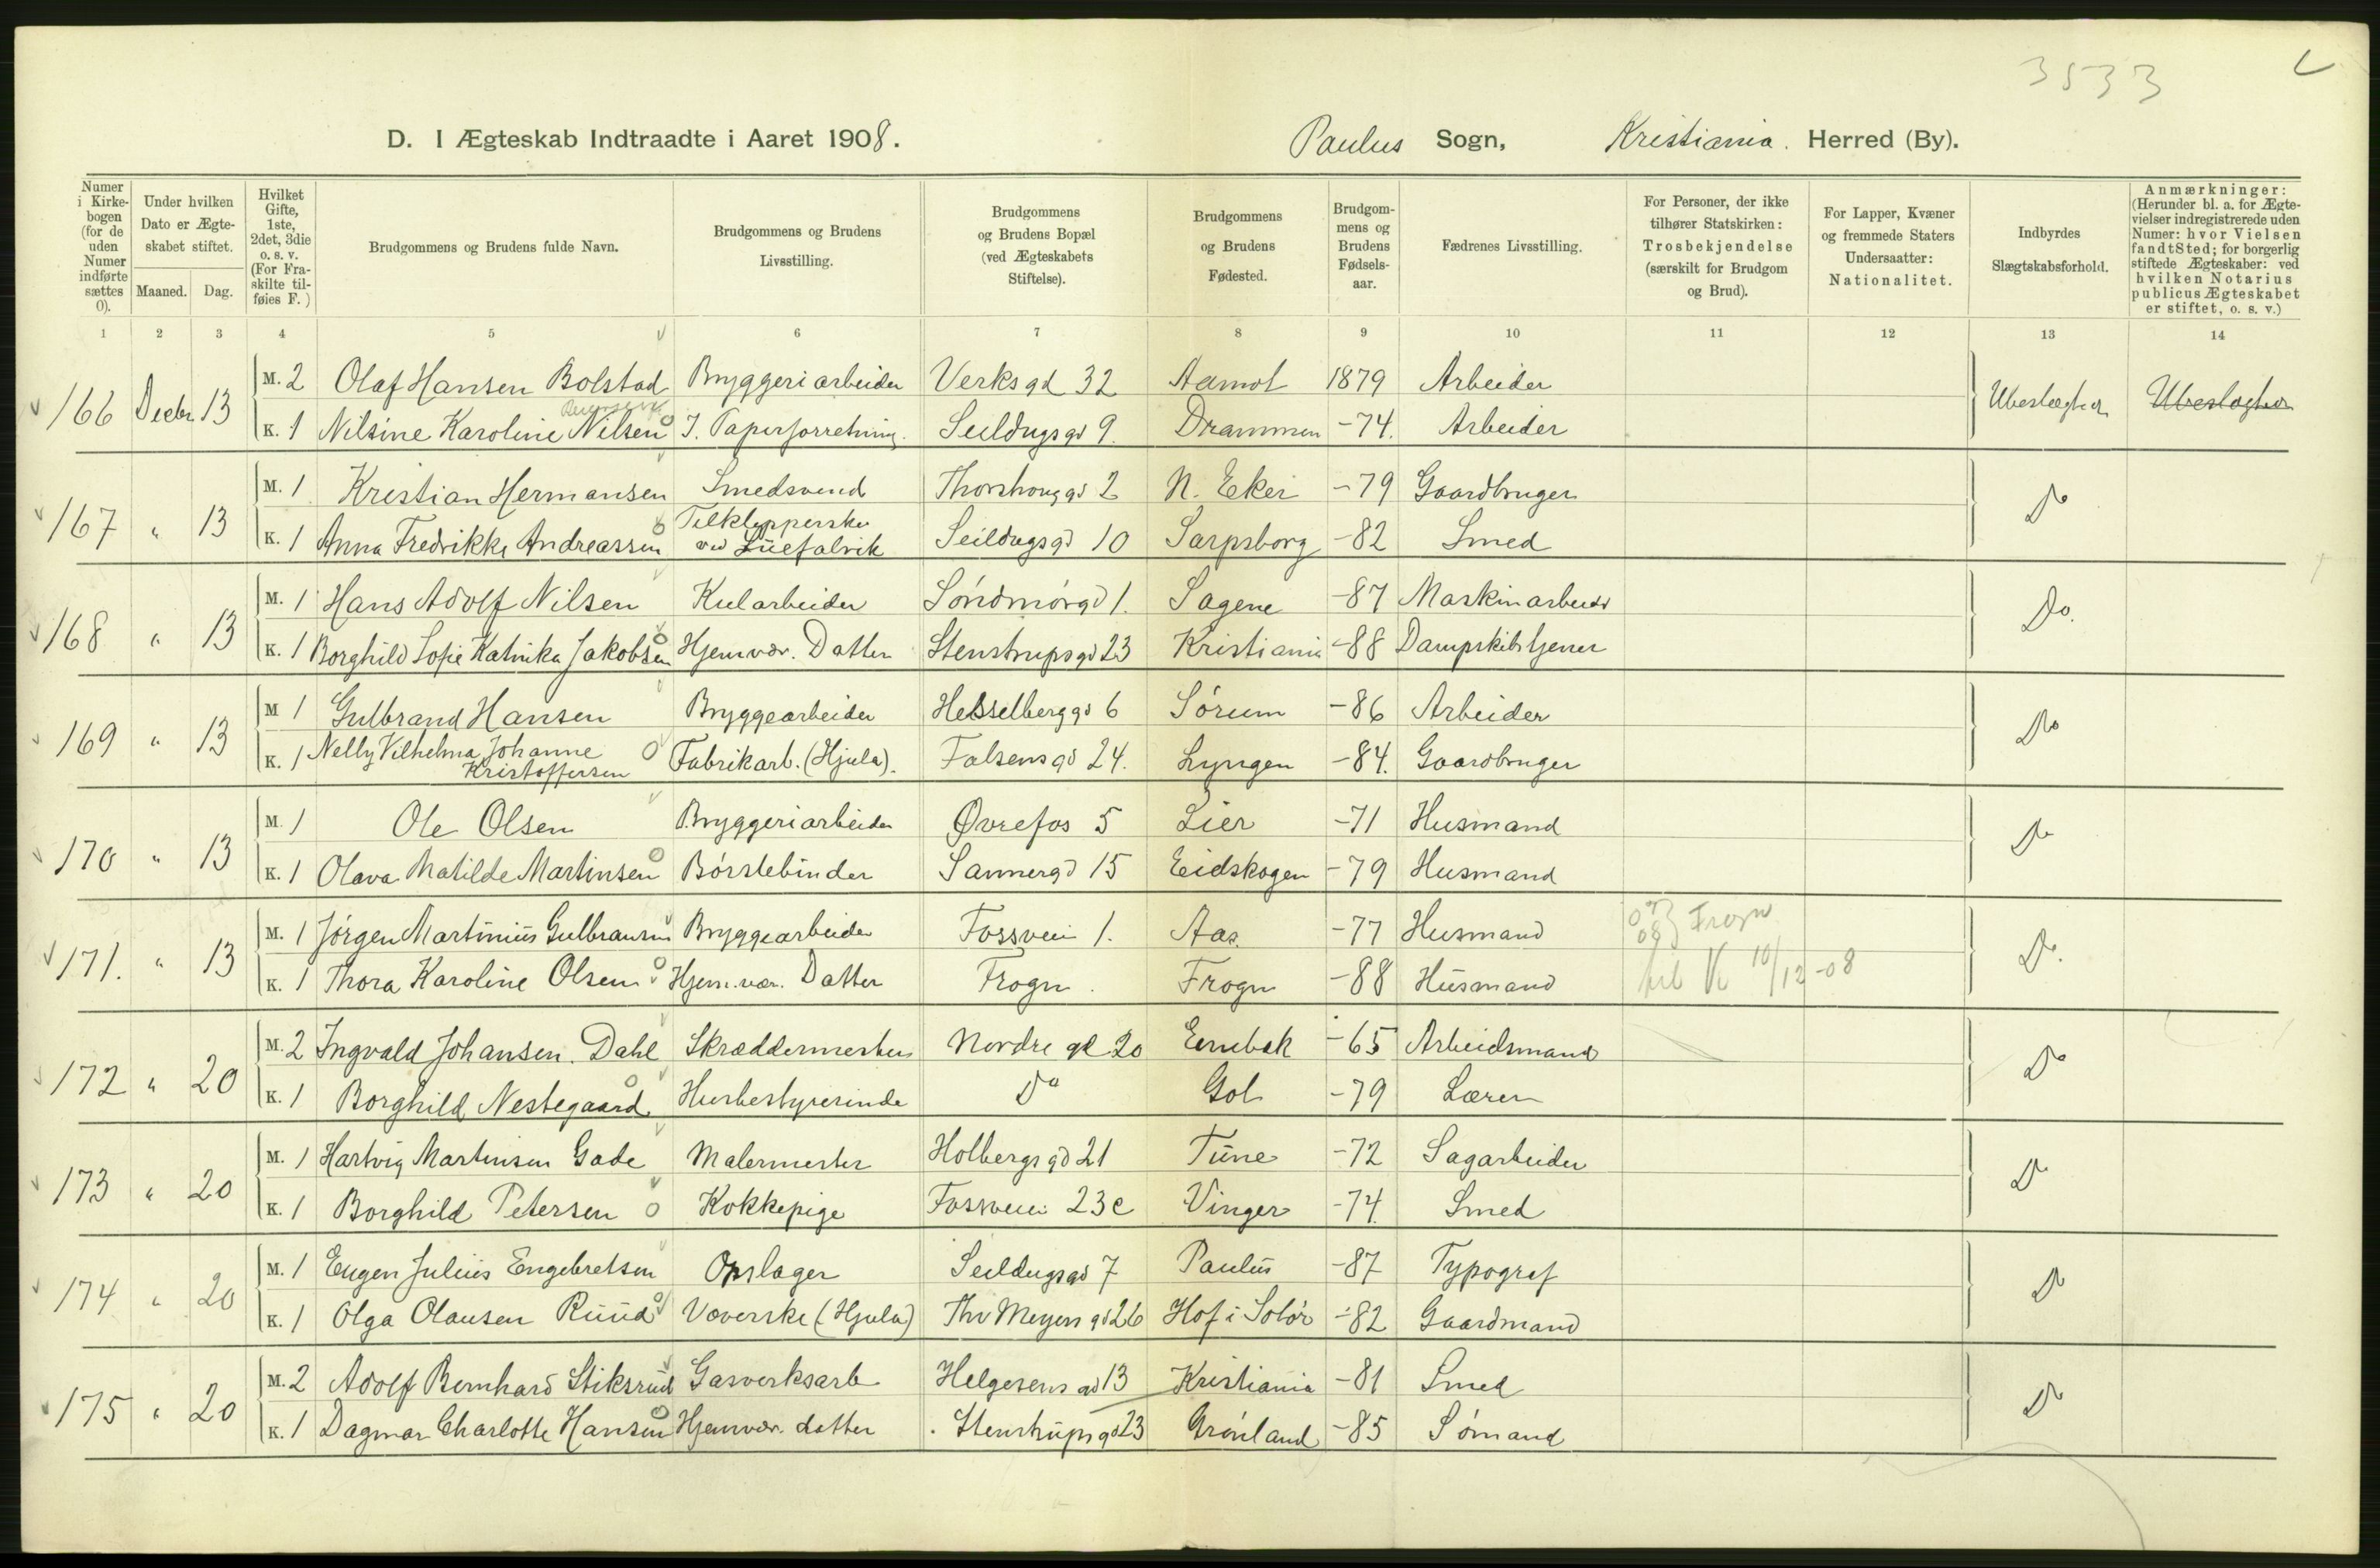 3533
D. I Ægteskab Indtraadte i Aaret 1908. Paulus Sogn, Kristiania. Herred (By).
Numer i Kirkebogen (for de uden Numer indførte sættes 0).
Under hvilken Dato er Ægteskabet stiftet.
Maaned. Dag.
Hvilket Gifte, 1ste, 2det, 3die o. s. v. (For Fraskilte tilføies F.)
Brudgommens og Brudens fulde Navn.
Brudgommens og Brudens Livsstilling.
Brudgommens og Brudens Bopæl (ved Ægteskabets Stiftelse).
Brudgommens og Brudens Fødested.
Brudgommens og Brudens Fødselsaar.
Fædrenes Livsstilling.
For Personer, der ikke tilhører Statskirken: Trosbekjendelse (særskilt for Brudgom og Brud).
For Lapper, Kvæner og fremmede Staters Undersaatter: Nationalitet.
Indbyrdes Slægtskabsforhold.
Anmærkninger: (Herunder bl. a. for Ægtevielser indregistrerede uden Numer: hvor Vielsen fandt Sted; for borgerlig stiftede Ægteskaber: ved hvilken Notarius publicus Ægteskabet er stiftet, o. s. v.)
1 2 3 4 5 6 7 8 9 10 11 12 13 14
166 Decbr 13 M. 2 Olaf Hansen Bolstad Bryggeriarbeider Verksgd 32 Aamot 1879 Arbeider Ubeslægtet Ubeslægtet
K. 1 Nilsine Karoline Nilsen I. Papirforretning. Seildugsgd 9. Drammen -74. Arbeider
167 " 13 M. 1 Kristian Hermansen Smedsvend Thorshouggd 2 N. Eker -79 Gaardbruger Do
K. 1 Anna Fredrikke Andreassen Tilklipperske ved Luefabrik Seildugsgd 10 Sarpsborg -82 Smed
168 " 13 M. 1 Hans Adolf Nilsen Kularbeider Söndmörgd 1. Sagene -87 Maskinarbeid Do.
K. 1 Borghild Sofie Katrika Jakobsen Hjemvær. Datter Stenstrupsgd 23 Kristiania -88 Dampskibstjener
169 " 13 M 1 Gulbrand Hansen Bryggearbeider Hesselberggd 6 Sörum -86 Arbeider Do
K. 1 Nelly Vilhelma Johanne Kristoffersen Fabrikarb. (Hjula). Falsensgd 24. Lyngen -84. Gaardbruger
170 " 13 M. 1 Ole Olsen Bryggeriarbeider Øvrefos 5 Lier -71 Husmand Do
K. 1 Olava Matilde Martinsen Börstebinder Sannergd 15 Eidskogen -79 Husmand
171. " 13 M. 1 Jörgen Martinius Gulbransen Bryggearbeider Fossvei 1. Aas. -77 Husmand Frogn Do.
K. 1 Thora Karoline Olsen Hjem.vær. Datter Frogn. Frogn -88 Husmand til K 10/12-08
172 " 20 M. 2 Ingvald Johansen Dahl Skræddermester Nordre gd 20 Enebak -65 Arbeidsmand Do
K. 1 Borghild Nestegaard Husbestyrerinde Do Gol -79 Lærer
173 " 20 M. 1 Hartvig Martinsen Gade Malermester Holbergsgd 21 Tune -72 Sagarbeider Do
K. 1 Borghild Petersen Kokkepige Fossveien 23c Vinger -74 Smed
174 " 20 M. 1 Eugen Julius Engebretsen Opslager Seildugsgd 7 Paulus -87 Typograf Do
K. 1 Olga Olausen Ruud Væverske (Hjula) Thv Meyers gd 26 Hof i Solör -82 Gaardmand
175 " 20 M. 2 Adolf Bernhard Stiksrud Gasverksarb Helgesens gd 13 Kristiania -81 Smed Do
K. 1 Dagmar Charlotte Hansen Hjemvær. datter Stenstrupsgd 23 Grönland -85 Sömand